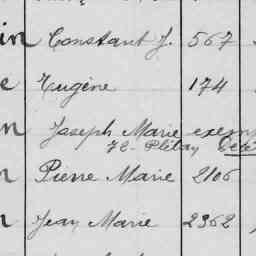 in Constant J. 567
e Eugène 174
n Joseph Marie exem
n Pierre Marie 2106
n Jean Marie 2362